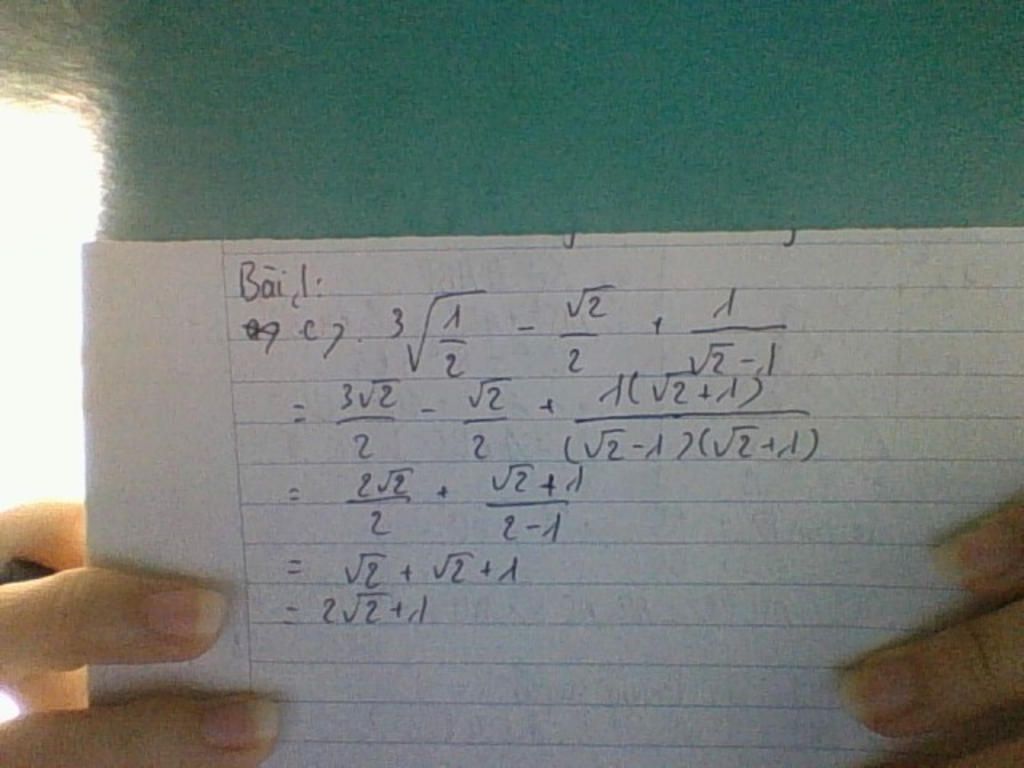 Bài 1:
c) . 3√(1/2) - √2/2 + 1/(√2-1)
= 3√2/2 - √2/2 + 1(√2+1)/((√2-1)(√2+1))
= 2√2/2 + (√2+1)/(2-1)
= √2 + √2 + 1
= 2√2+1